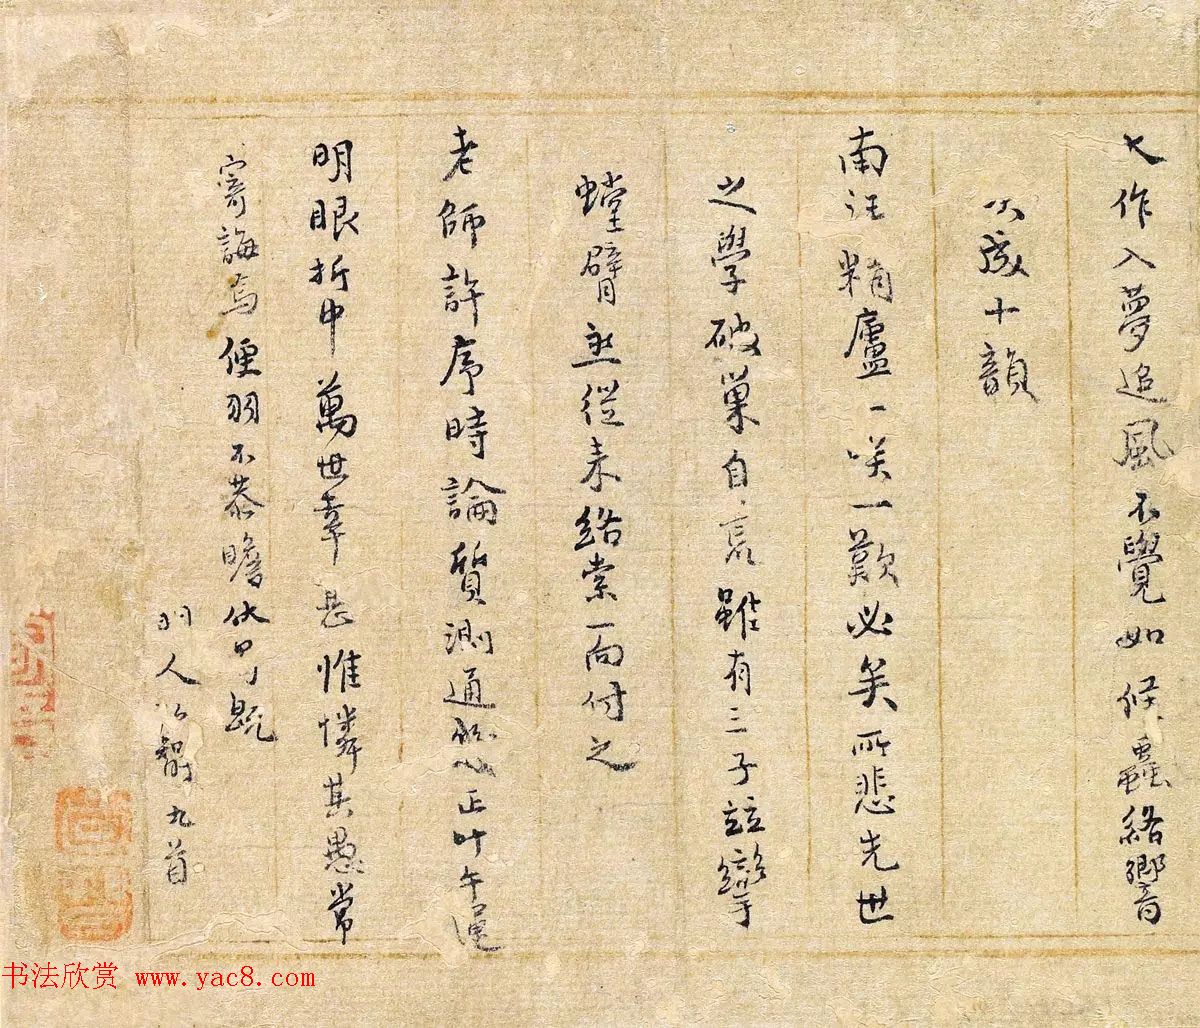 大作入夢追風不覺如候蟲絡響
次成十韻
南汪精廬一咲一歎必矣所悲先世
之學破巢自哀雖有三子竝孿
螳臂 從耒絡索一向付之
老師許序時論質測通 正叶午運
明眼折中萬世幸甚惟憐其愚常
寄誨焉便羽不恭瞻依 可既
羽人 智九首
书法欣赏 www.yac8.com